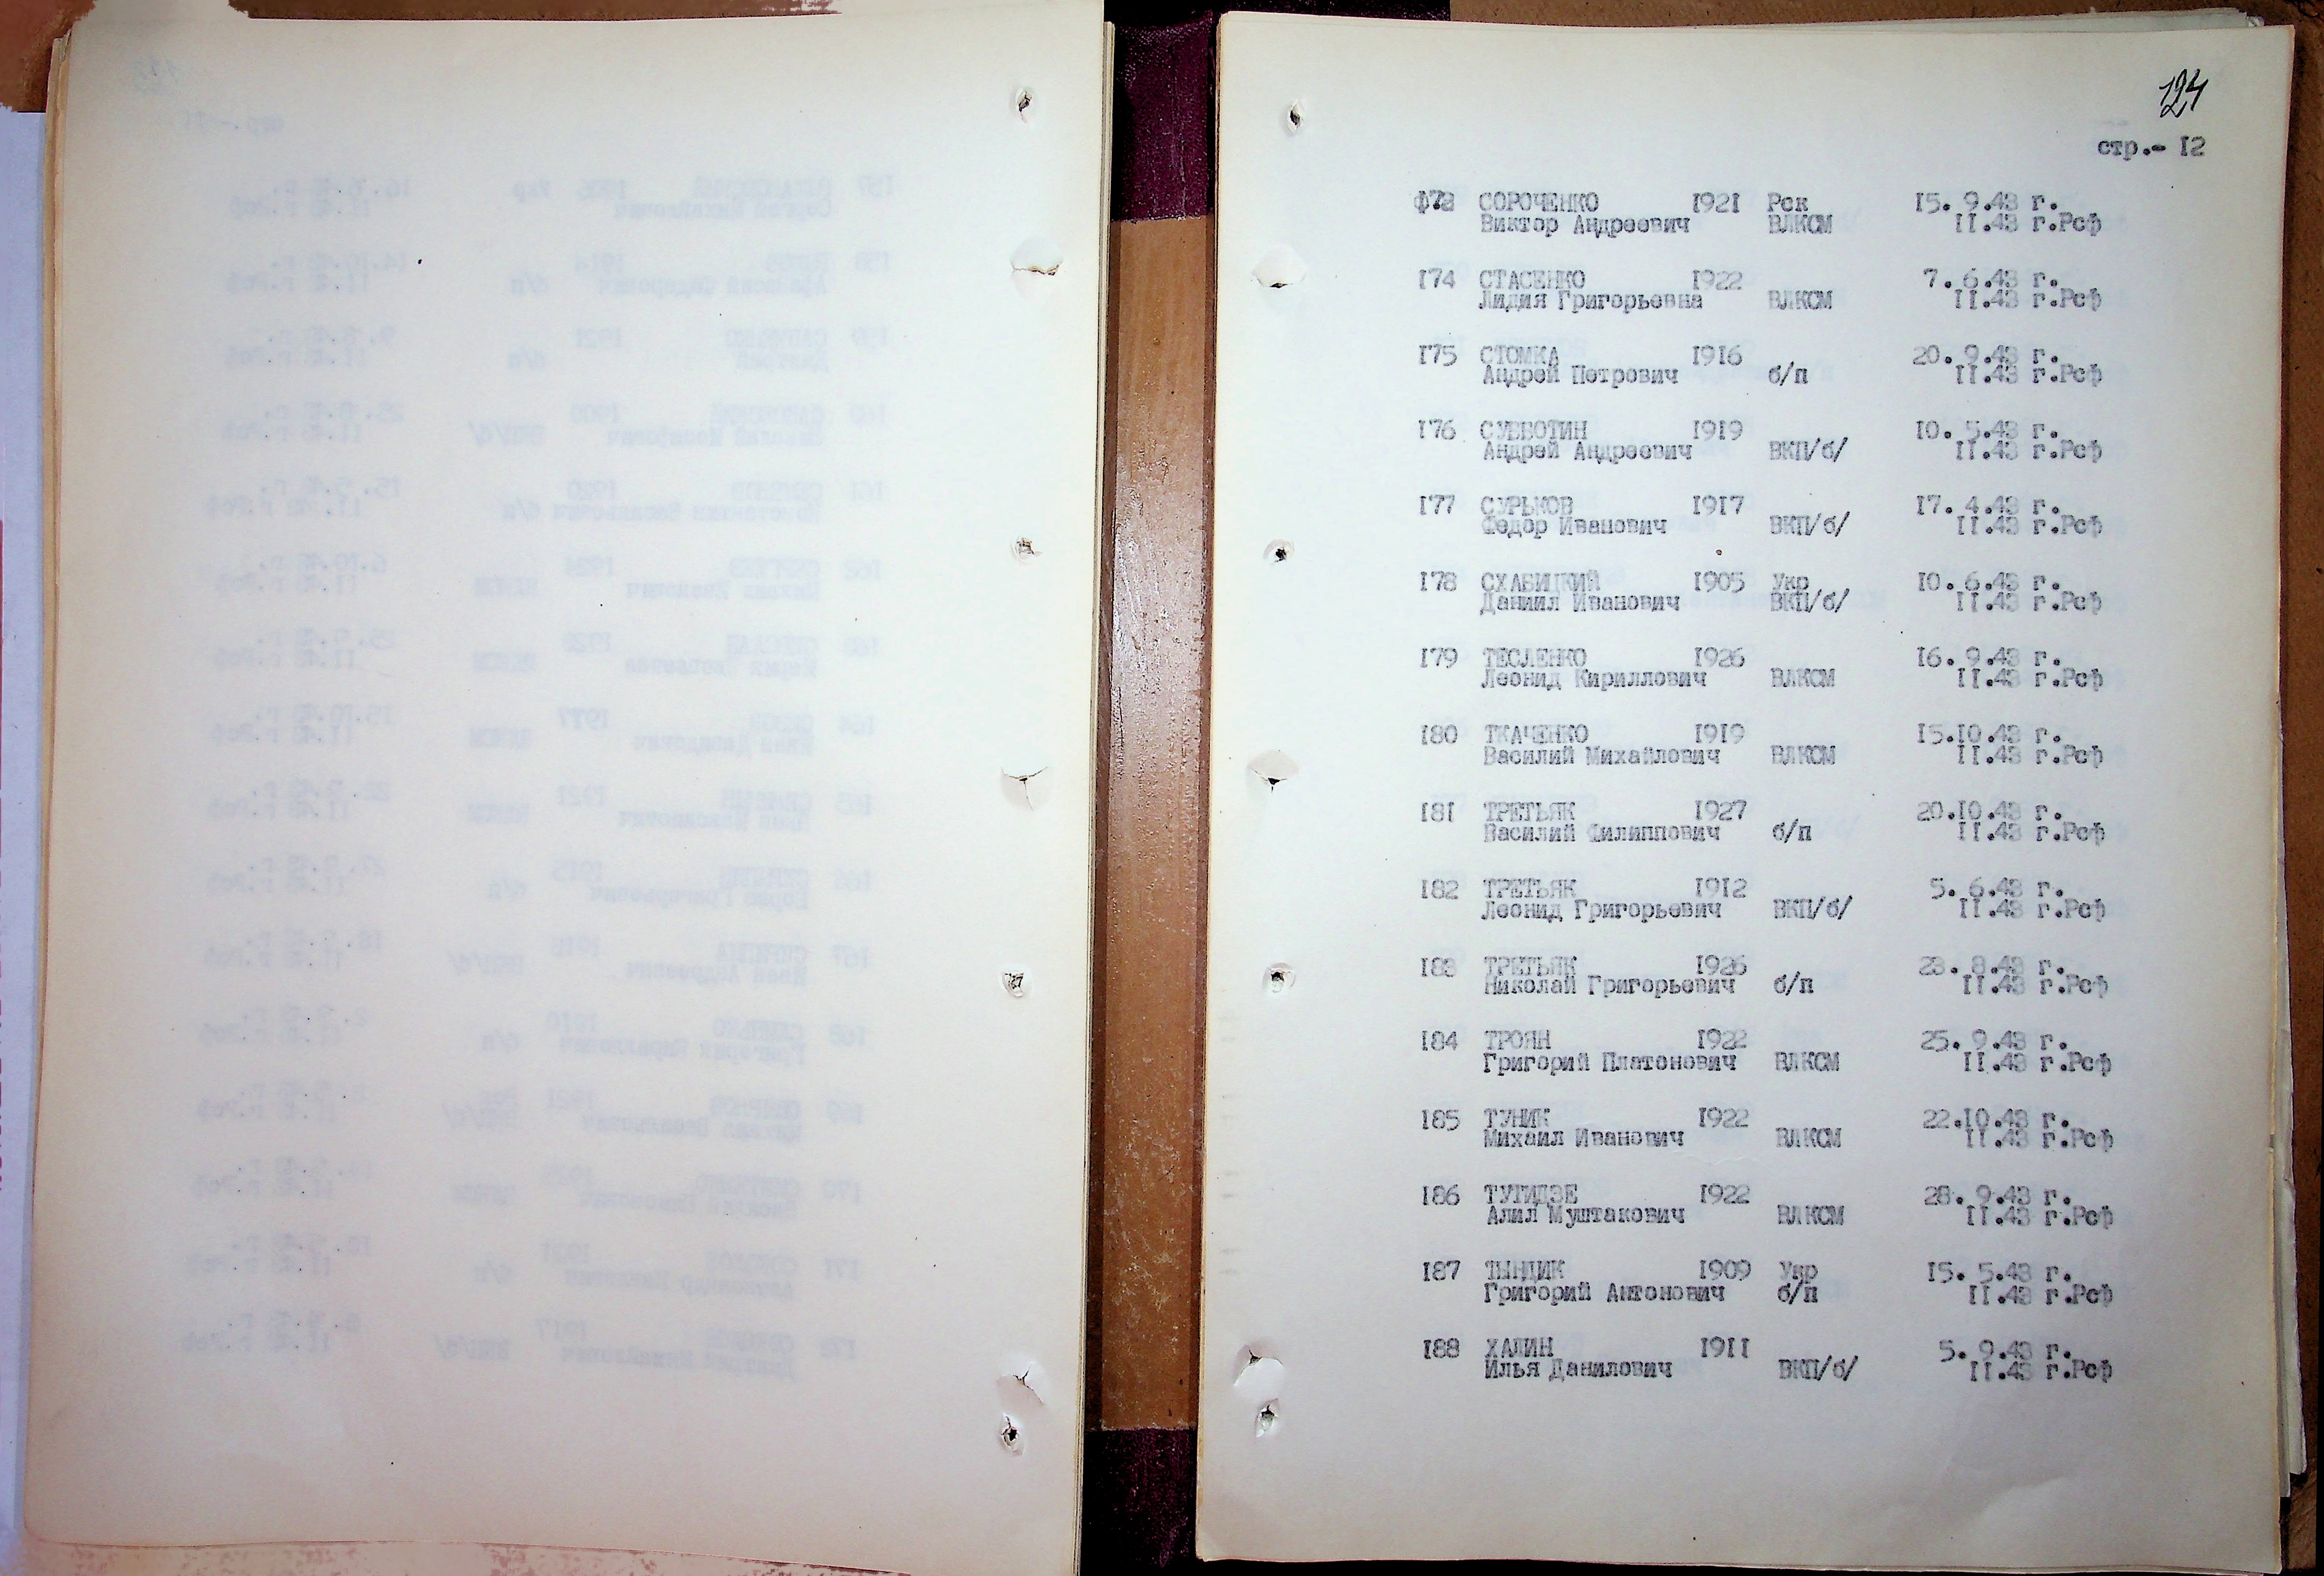 124
стр.- 12
173 СОРОЧЕНКО 1921 Рск 15. 9.43 г.
Виктор Андреевич ВЛКСМ 11.43 г.Рсф
174 СТАСЕНКО 1922 7. 6.43 г.
Лидия Григорьевна ВЛКСМ 11.43 г.Рсф
175 СТОМКА 1916 20. 9.43 г.
Андрей Петрович б/п 11.43 г.Рсф
176 СУББОТИН 1919 10. 5.43 г.
Андрей Андреевич ВКП/б/ 11.43 г.Рсф
177 СУРЬКОВ 1917 17. 4.43 г.
Федор Иванович ВКП/б/ 11.43 г.Рсф
178 СХАБИЦКИЙ 1905 Укр 10. 6.43 г.
Даниил Иванович ВКП/б/ 11.43 г.Рсф
179 ТЕСЛЕНКО 1926 16. 9.43 г.
Леонид Кириллович ВЛКСМ 11.43 г.Рсф
180 ТКАЧЕНКО 1919 15.10.43 г.
Василий Михайлович ВЛКСМ 11.43 г.Рсф
181 ТРЕТЬЯК 1927 20.10.43 г.
Василий Филиппович б/п 11.43 г.Рсф
182 ТРЕТЬЯК 1912 5. 6.43 г.
Леонид Григорьевич ВКП/б/ 11.43 г.Рсф
183 ТРЕТЬЯК 1926 23. 8.43 г.
Николай Григорьевич б/п 11.43 г.Рсф
184 ТРОЯН 1922 25. 9.43 г.
Григорий Платонович ВЛКСМ 11.43 г.Рсф
185 ТУНИК 1922 22.10.43 г.
Михаил Иванович ВЛКСМ 11.43 г.Рсф
186 ТУГИДЗЕ 1922 28. 9.43 г.
Алил Муштакович ВЛКСМ 11.43 г.Рсф
187 ТЫНДИК 1909 Укр 15. 5.43 г.
Григорий Антонович б/п 11.43 г.Рсф
188 ХАЛИН 1911 5. 9.43 г.
Илья Данилович ВКП/б/ 11.43 г.Рсф